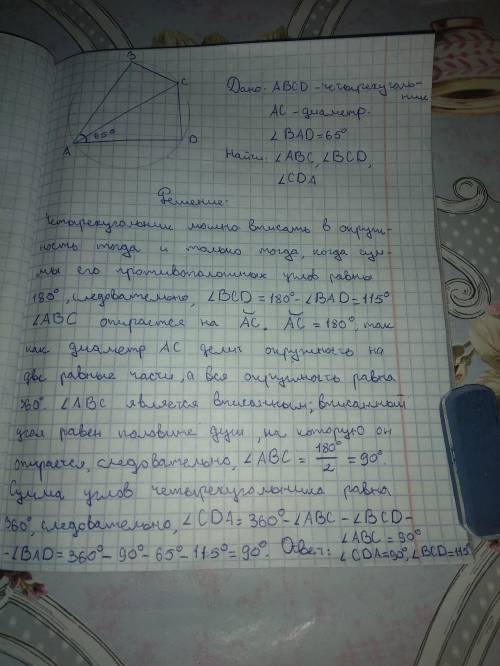 B
C
A
65°
D
Дано: ABCD - четырехугольник
AC - диаметр.
∠BAD = 65°
Найти: ∠ABC, ∠BCD,
∠CDA
Решение:
Четырехугольник можно вписать в окруж-
ность тогда и только тогда, когда сум-
мы его противоположных углов равны
180°, следовательно, ∠BCD = 180° - ∠BAD = 115°
∠ABC опирается на ◡AC. ◡AC = 180°, так
как диаметр AC делит окружность на
две равные части, а вся окружность равна
360°. ∠ABC является вписанным; вписанный
угол равен половине дуги, на которую он
опирается, следовательно, ∠ABC = 180°/2 = 90°.
Сумма углов четырехугольника равна
360°, следовательно, ∠CDA = 360° - ∠ABC - ∠BCD -
- ∠BAD = 360° - 90° - 65° - 115° = 90°. Ответ: ∠ABC = 90°
∠CDA = 90°, ∠BCD = 115°